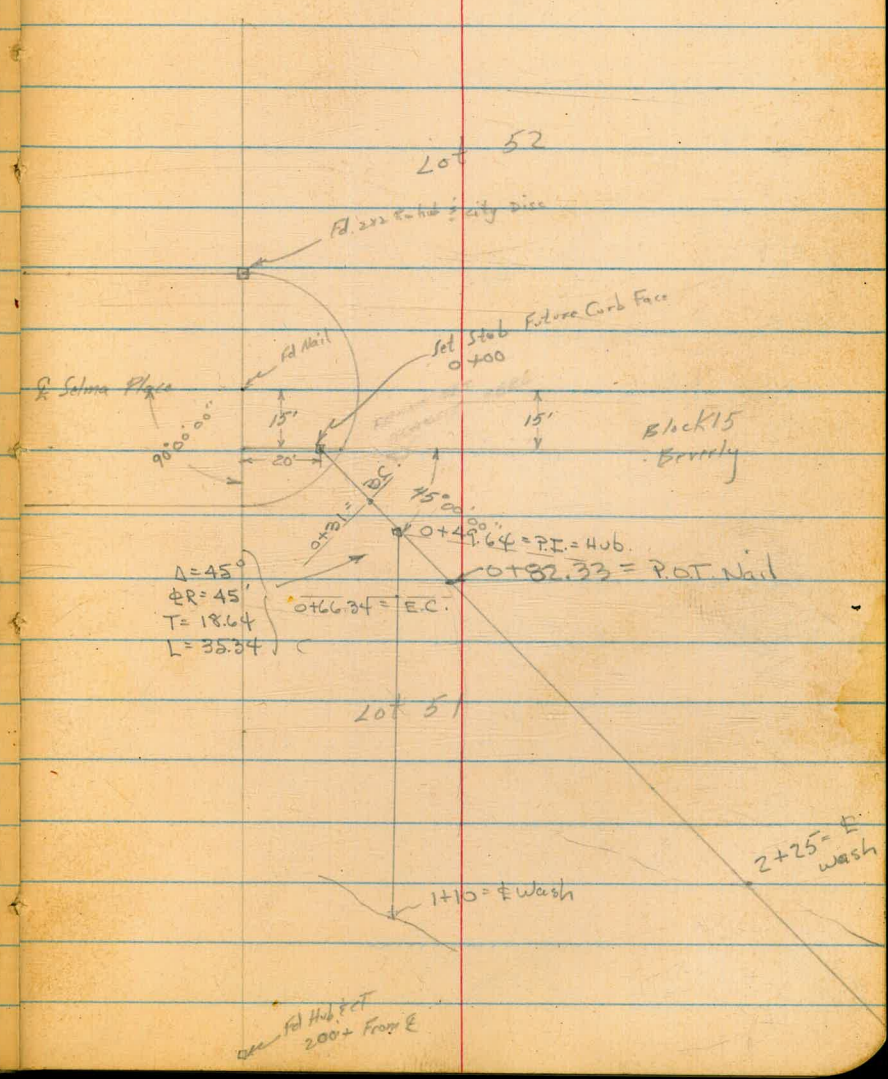 Lot 52
Fd. 2x2 Rw hub & city Disc
Set Stob Future Curb Face
0+00
Fd Nail
℄ Selma Place
15'
15'
Block 15
Beverly
90°00'00"
20'
0+31 = B.C.
45°00'00"
0+49.64 = P.I. = Hub.
0+82.33 = P.O.T. Nail
Δ = 45°
℄R = 45'
T = 18.64
L = 35.34
0+66.34 = E.C.
Lot 51
2+25 = ℄
wash
1+10 = ℄ Wash
Fd Hub & T
200'± From ℄